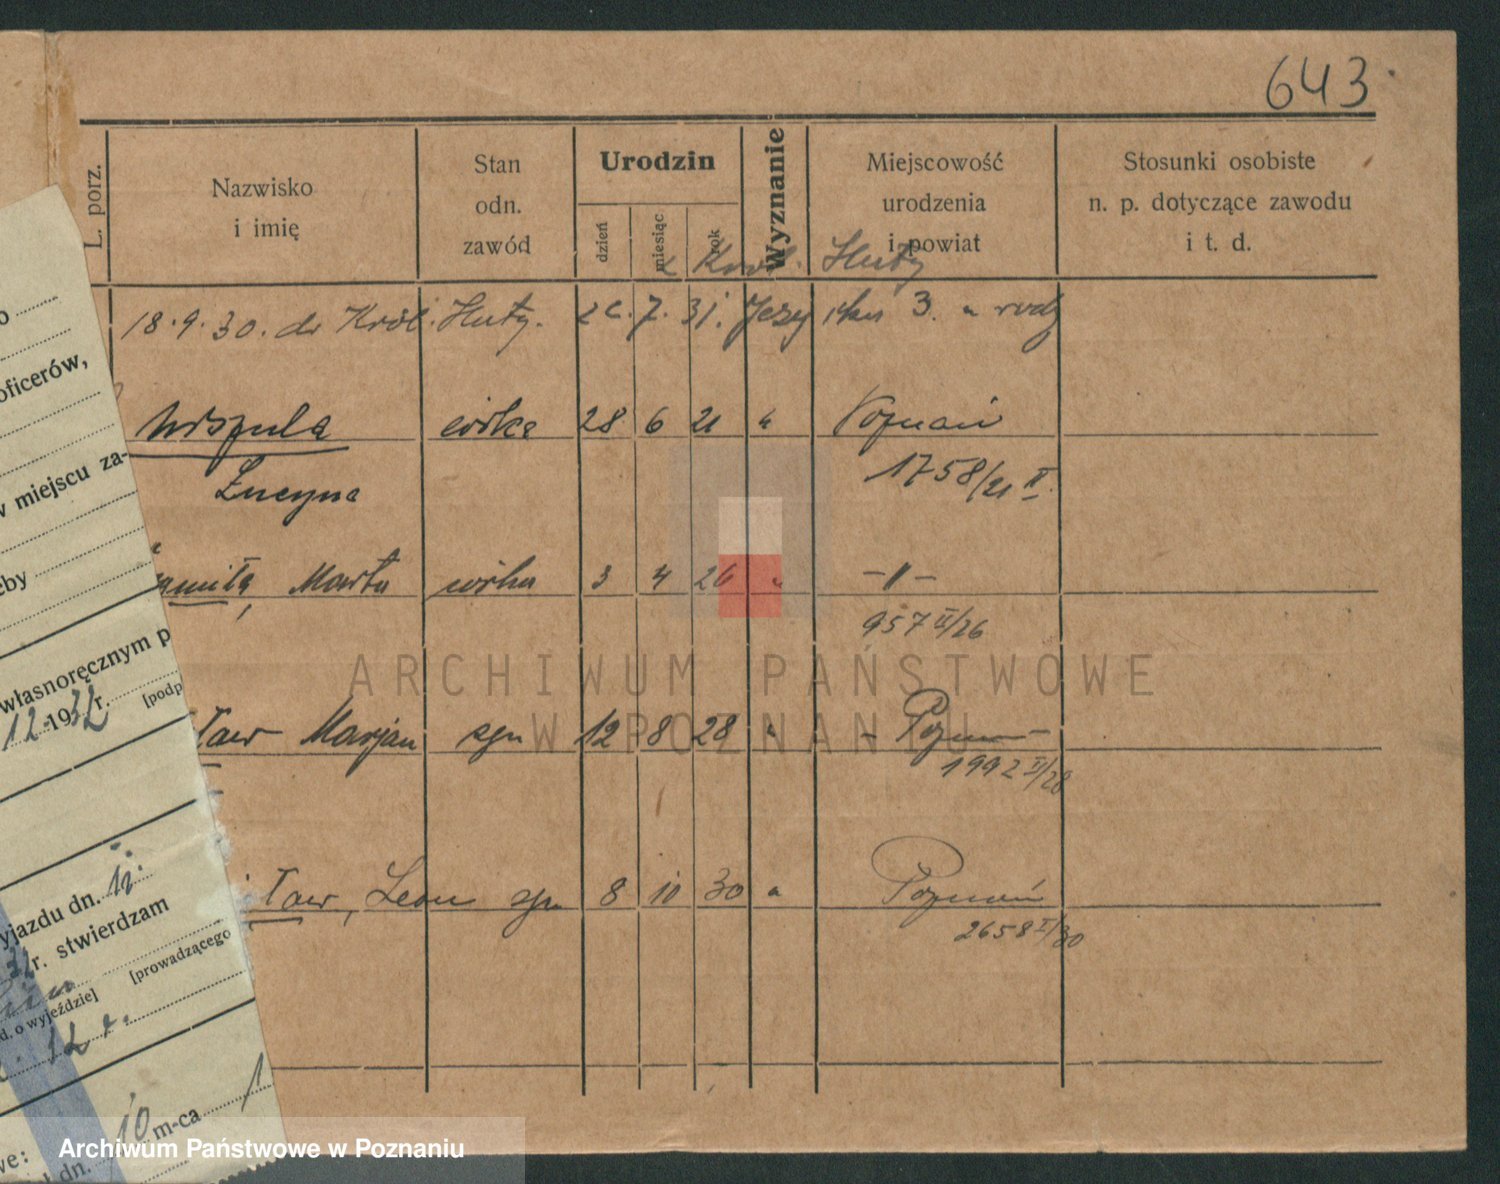 643
L. porz.
Nazwisko
i imię
Stan
odn.
zawód
Urodzin
dzień
miesiąc
rok
Wyznanie
Miejscowość
urodzenia
i powiat
Stosunki osobiste
n. p. dotyczące zawodu
i t. d.
z Król. Huty
18.9.30. do Król. Huty. 7. 31. 3. rodz
Urszula córka 28 6 21 " Poznań
Łucyna 1758/21 II.
Marta córka 3 4 26 " -"-
957 II/26
ław Marjan syn 12 8 28 " - Pozn -
1992 II/28
ław, Leon syn 8 10 30 " Poznań
2658 II/30
oficerów,
w miejscu za-
eby
własnoręcznym p
12. 1932 r. [podp
yjazdu dn. 12.
32 r. stwierdzam
[prowadzącego
d. o wyjeździe]
12 r.
10 m-ca 1
we:
dn.
ARCHIWUM PAŃSTWOWE
W POZNANIU
Archiwum Państwowe w Poznaniu